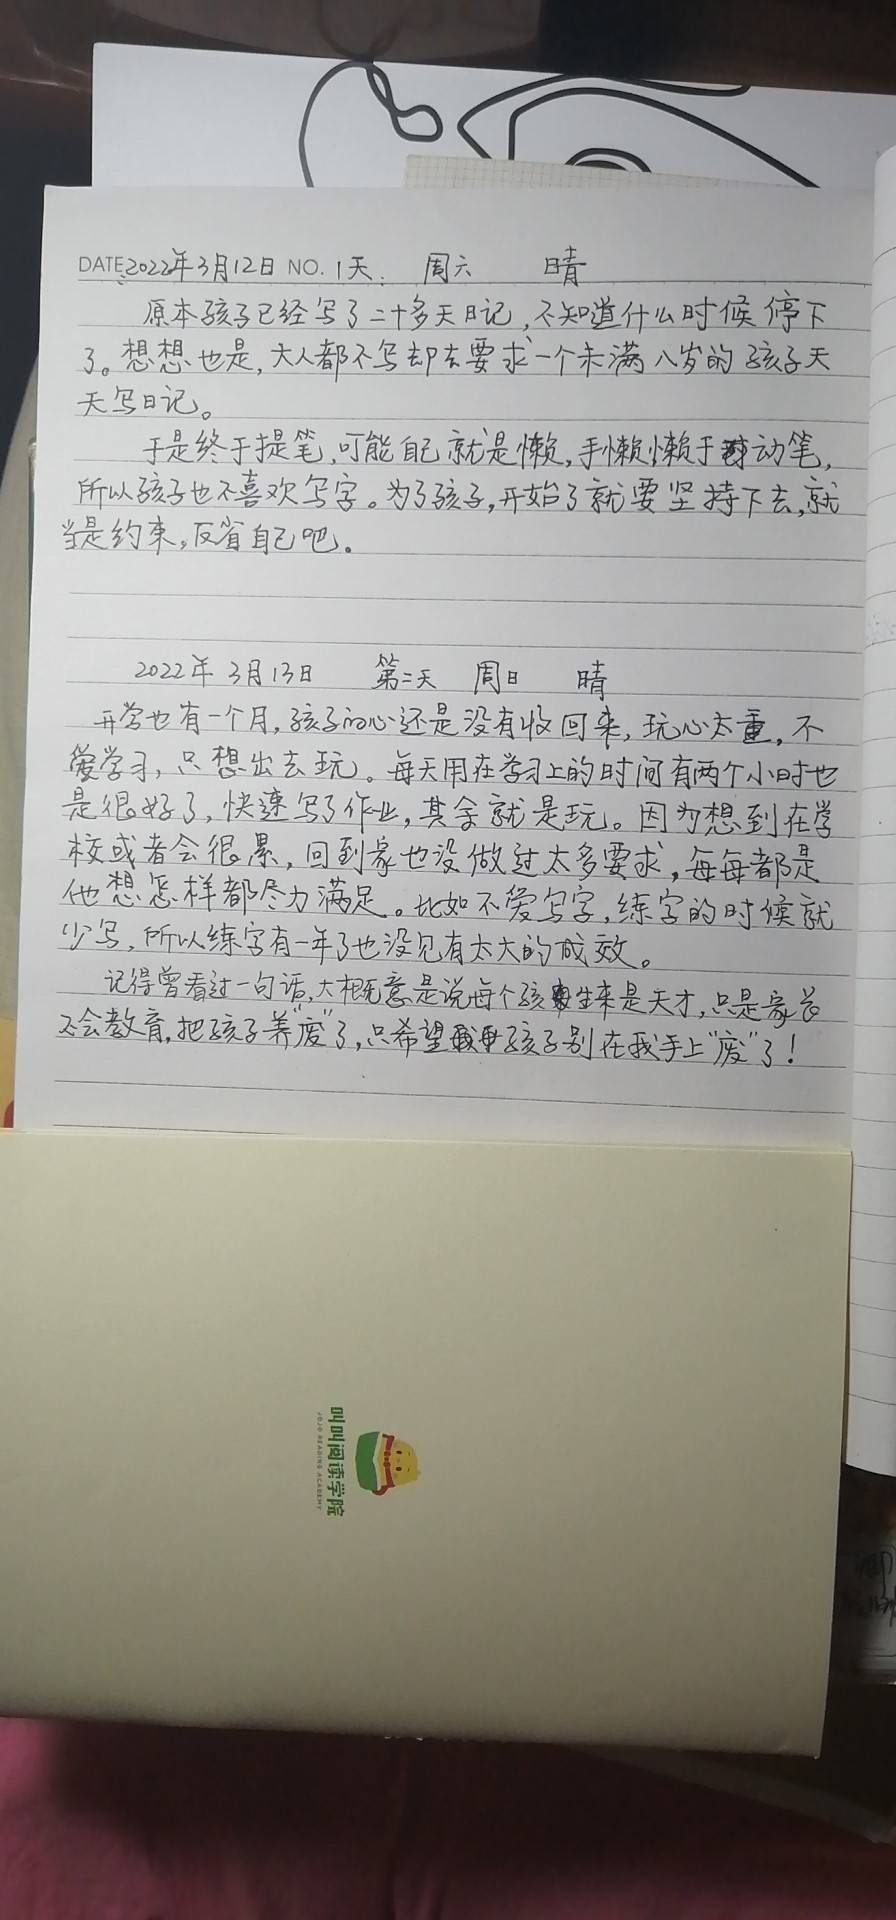 DATE 2022年3月12日 NO. 1天. 周六 晴
原本孩子已经写了二十多天日记,不知道什么时候停下
了。想想也是,大人都不写却去要求一个未满八岁的孩子天
天写日记。
于是终于提笔,可能自己就是懒,手懒懒于动笔,
所以孩子也不喜欢写字。为了孩子,开始了就要坚持下去,就
当是约束,反省自己吧。
2022年3月13日 第二天 周日 晴
开学也有一个月,孩子的心还是没有收回来,玩心太重,不
爱学习,只想出去玩。每天用在学习上的时间有两个小时也
是很好了,快速写了作业,其余就是玩。因为想到在学
校或者会很累,回到家也没做过太多要求,每每都是
他想怎样都尽力满足。比如不爱写字,练字的时候就
少写,所以练字有一年了也没见有太大的成效。
记得曾看过一句话,大概意是说每个孩生来是天才,只是家长
不会教育,把孩子养"废"了,只希望孩子别在我手上"废"了!
叫叫阅读学院
JOJO READING ACADEMY